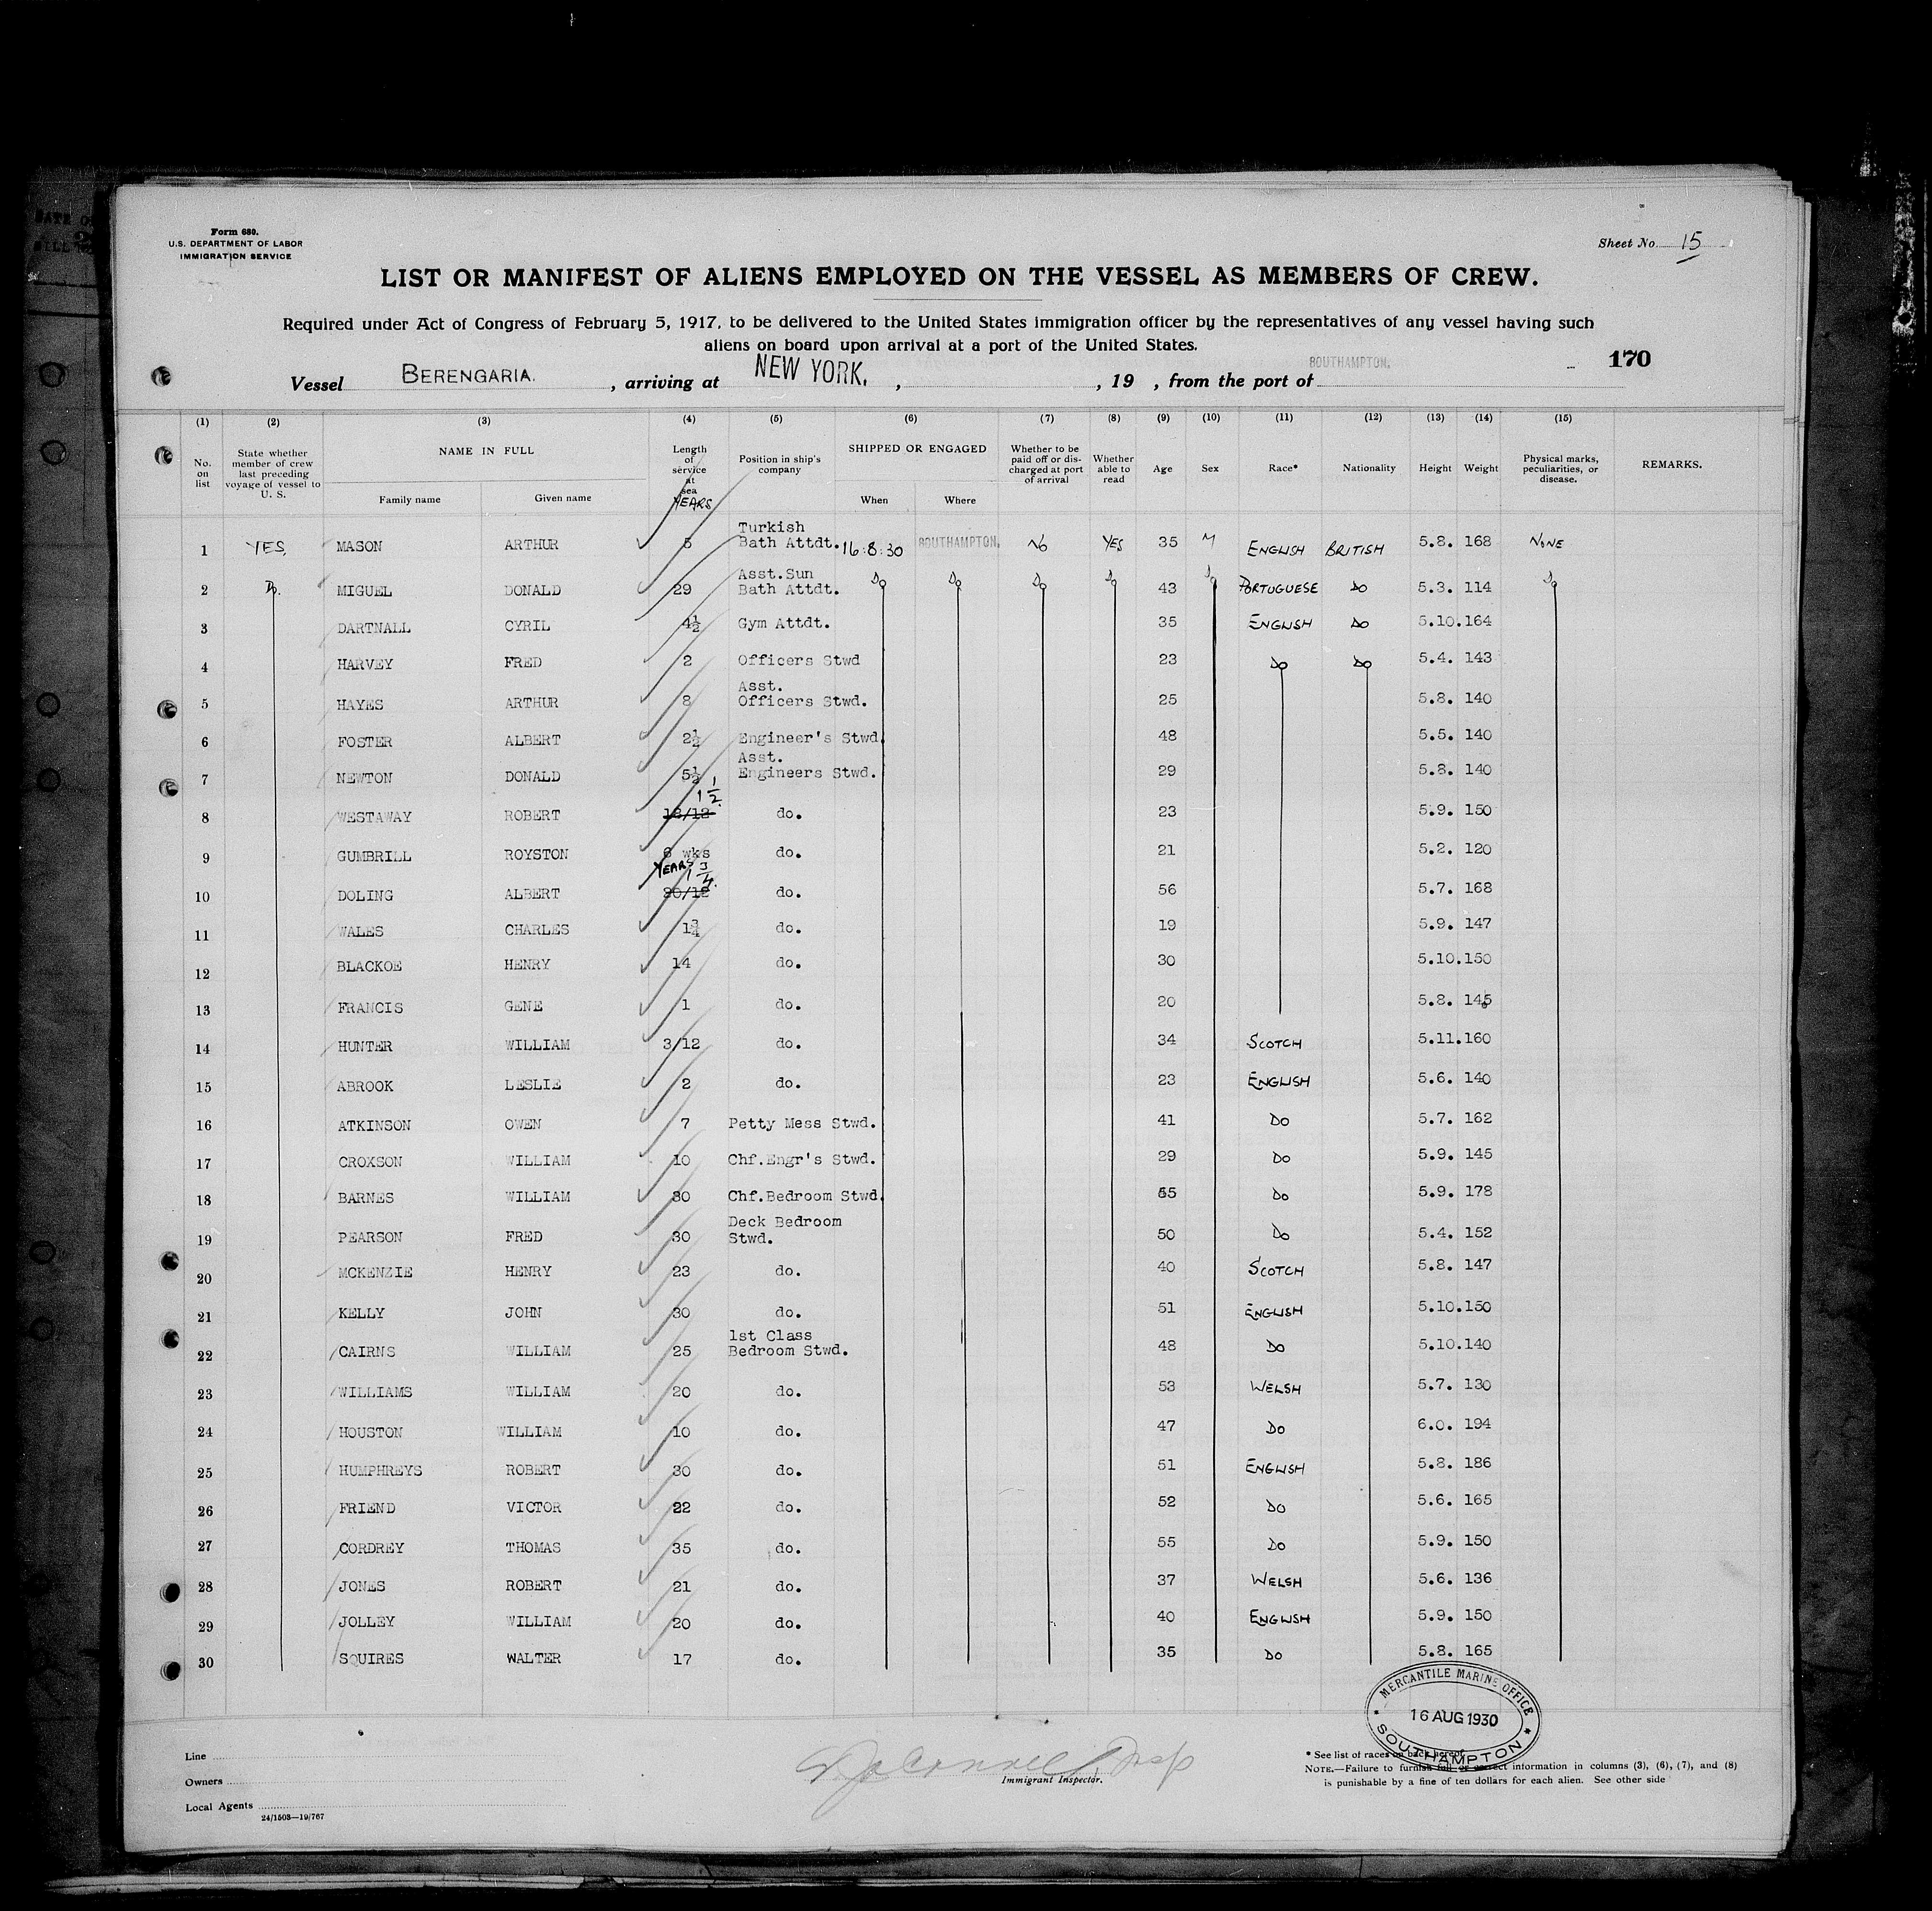 Form 680.
U.S. DEPARTMENT OF LABOR
IMMIGRATION SERVICE
Sheet No. 15
LIST OR MANIFEST OF ALIENS EMPLOYED ON THE VESSEL AS MEMBERS OF CREW.
Required under Act of Congress of February 5, 1917, to be delivered to the United States immigration officer by the representatives of any vessel having such
aliens on board upon arrival at a port of the United States.
170
Vessel BERENGARIA. , arriving at NEW YORK. , , 19 , from the port of SOUTHAMPTON.
(1) (2) (3) (4) (5) (6) (7) (8) (9) (10) (11) (12) (13) (14) (15)
No. on list State whether member of crew last preceding voyage of vessel to U. S. NAME IN FULL Family name Given name Length of service at sea YEARS Position in ship's company SHIPPED OR ENGAGED When Where Whether to be paid off or discharged at port of arrival Whether able to read Age Sex Race* Nationality Height Weight Physical marks, peculiarities, or disease. REMARKS.
1 YES, MASON ARTHUR 5 Turkish Bath Attdt. 16:8:30 SOUTHAMPTON. NO YES 35 M ENGLISH BRITISH 5.8. 168 NONE
2 Do. MIGUEL DONALD 29 Asst.Sun Bath Attdt. Do Do Do Do 43 Do PORTUGUESE DO 5.3. 114 Do
3 DARTNALL CYRIL 4½ Gym Attdt. 35 ENGLISH DO 5.10. 164
4 HARVEY FRED 2 Officers Stwd 23 DO DO 5.4. 143
5 HAYES ARTHUR 8 Asst. Officers Stwd. 25 5.8. 140
6 FOSTER ALBERT 2½ Engineer's Stwd. 48 5.5. 140
7 NEWTON DONALD 5½ Asst. Engineers Stwd. 29 5.8. 140
8 WESTAWAY ROBERT 1½ do. 23 5.9. 150
9 GUMBRILL ROYSTON 6 wks do. 21 5.2. 120
10 DOLING ALBERT YEARS 1¾ 20/12 do. 56 5.7. 168
11 WALES CHARLES 1¾ do. 19 5.9. 147
12 BLACKOE HENRY 14 do. 30 5.10. 150
13 FRANCIS GENE 1 do. 20 5.8. 145
14 HUNTER WILLIAM 3/12 do. 34 SCOTCH 5.11. 160
15 ABROOK LESLIE 2 do. 23 ENGLISH 5.6. 140
16 ATKINSON OWEN 7 Petty Mess Stwd. 41 DO 5.7. 162
17 CROXSON WILLIAM 10 Chf.Engr's Stwd. 29 DO 5.9. 145
18 BARNES WILLIAM 30 Chf.Bedroom Stwd. 55 DO 5.9. 178
19 PEARSON FRED 30 Deck Bedroom Stwd. 50 DO 5.4. 152
20 MCKENZIE HENRY 23 do. 40 SCOTCH 5.8. 147
21 KELLY JOHN 30 do. 51 ENGLISH 5.10. 150
22 CAIRNS WILLIAM 25 1st Class Bedroom Stwd. 48 DO 5.10. 140
23 WILLIAMS WILLIAM 20 do. 53 WELSH 5.7. 130
24 HOUSTON WILLIAM 10 do. 47 DO 6.0. 194
25 HUMPHREYS ROBERT 30 do. 51 ENGLISH 5.8. 186
26 FRIEND VICTOR 22 do. 52 DO 5.6. 165
27 CORDREY THOMAS 35 do. 55 DO 5.9. 150
28 JONES ROBERT 21 do. 37 WELSH 5.6. 136
29 JOLLEY WILLIAM 20 do. 40 ENGLISH 5.9. 150
30 SQUIRES WALTER 17 do. 35 DO 5.8. 165
MERCANTILE MARINE OFFICE
16 AUG 1930
SOUTHAMPTON
Line
Owners
Local Agents
24/1503—19/767
Immigrant Inspector.
* See list of races on back hereof.
NOTE.—Failure to furnish full or correct information in columns (3), (6), (7), and (8)
is punishable by a fine of ten dollars for each alien. See other side